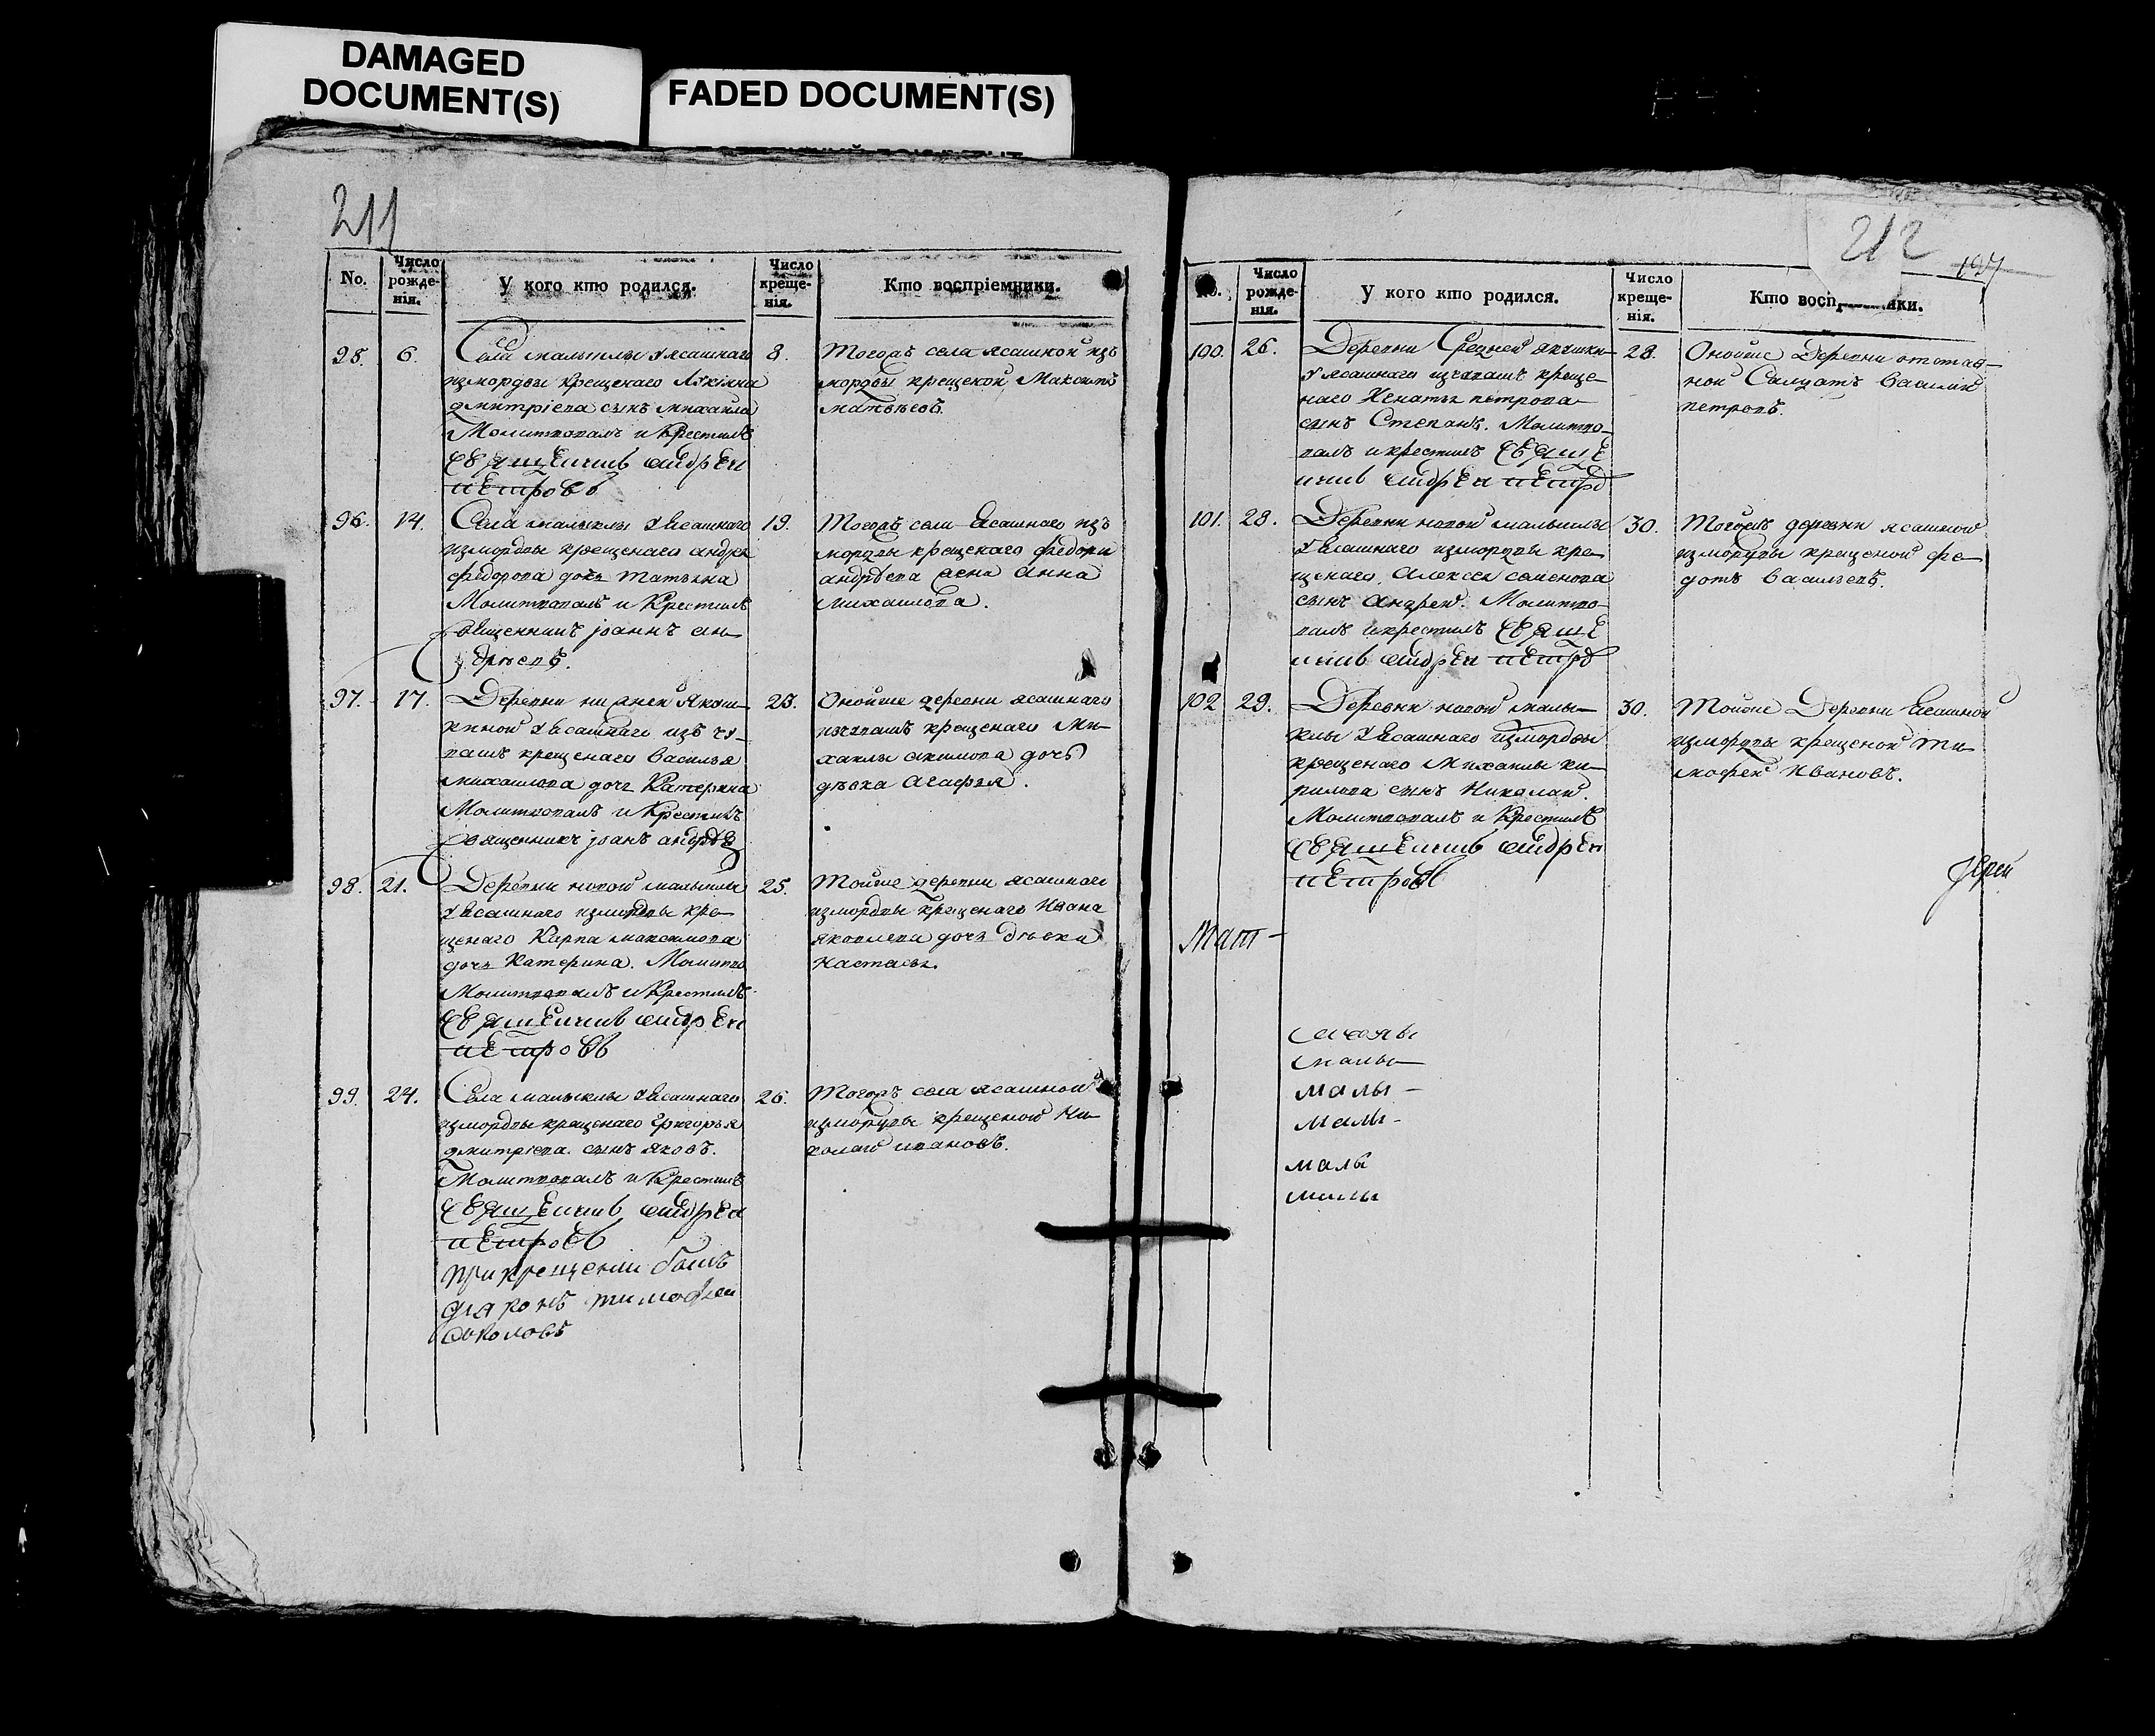 DAMAGED
DOCUMENT(S)
FADED DOCUMENT(S)
211
No.
Число
рожде-
нія.
У кого кто родился.
Число
креще-
нія.
Кто воспріемники.
95. 6.
Села малыклы у ясашнаго
измордвы крещенаго
дмитріева сынъ михаила
Молитвовалъ и Крестилъ
священникъ андрей
петровъ
8.
Тогожъ села ясашной изъ
мордвы крещеной Максимъ
матвеевъ.
96. 14.
Села малыклы у Ясашнаго
измордвы крещенаго андрея
федорова дочь татьяна
Молитвовалъ и Крестилъ
священникъ іоаннъ ан-
дреевъ.
19.
Тогожъ села Ясашнаго изъ
мордвы крещенаго федора
андреева жена анна
михаилова.
97. 17.
Деревни нижней Якуш-
киной у Ясашнаго изъ чу-
вашъ крещенаго василья
михаилова дочь Катерина
Молитвовалъ и Крестилъ
священникъ іоанъ андреев
23.
Онойже деревни ясашнаго
изчувашъ крещенаго Ми-
хаилы акимова дочь
девка агафья.
98. 21.
Деревни новой малыклы
у Ясашнаго измордвы кре-
щенаго Карпа максимова
дочь Катерина. Молитво
Молитвовалъ и Крестилъ
священникъ андрей
петровъ
25.
Тойже деревни ясашнаго
измордвы крещенаго Ивана
яковлева дочь девка
Настасья.
99. 24.
Села малыклы у Ясашнаго
измордвы крещенаго Григорья
дмитріева. сынъ яковъ.
Молитвовалъ и Крестилъ
священникъ андрей
петровъ
при крещении былъ
диаконъ тимофеи
соколовъ
26.
Тогожъ села ясашной
измордвы крещеной Ни-
колай ивановъ.
212
No.
Число
рожде-
нія.
У кого кто родился.
Число
креще-
нія.
Кто восп ики.
100. 26.
Деревни Средней якушки-
у ясашнаго изчувашъ креще-
наго Игнатья петрова
сынъ Степанъ. Молитво-
валъ и крестилъ свяще
никъ андрей петро
28.
Онойже Деревни отстав-
ной Салдатъ василий
петровъ.
101. 28.
Деревни новой малыклы
у Ясашнаго измордвы кре-
щенаго, алексея семенова
сынъ андрей. Молитво-
валъ и крестилъ свяще
никъ андрей петро
30.
Тойже деревни ясашной
измордвы крещеной фе-
дотъ васильевъ.
102 29.
Деревни новой малы-
клы у Ясашнаго измордвы
крещенаго Михаилы ки-
рилова сынъ Николай.
Молитвовалъ и Крестилъ
священникъ андрей
петровъ
30.
Тойже Деревни Ясашной
измордвы крещеной ти-
мофей Ивановъ.
Іерей
Мат-
малы-
малы-
малы-
малы
малы